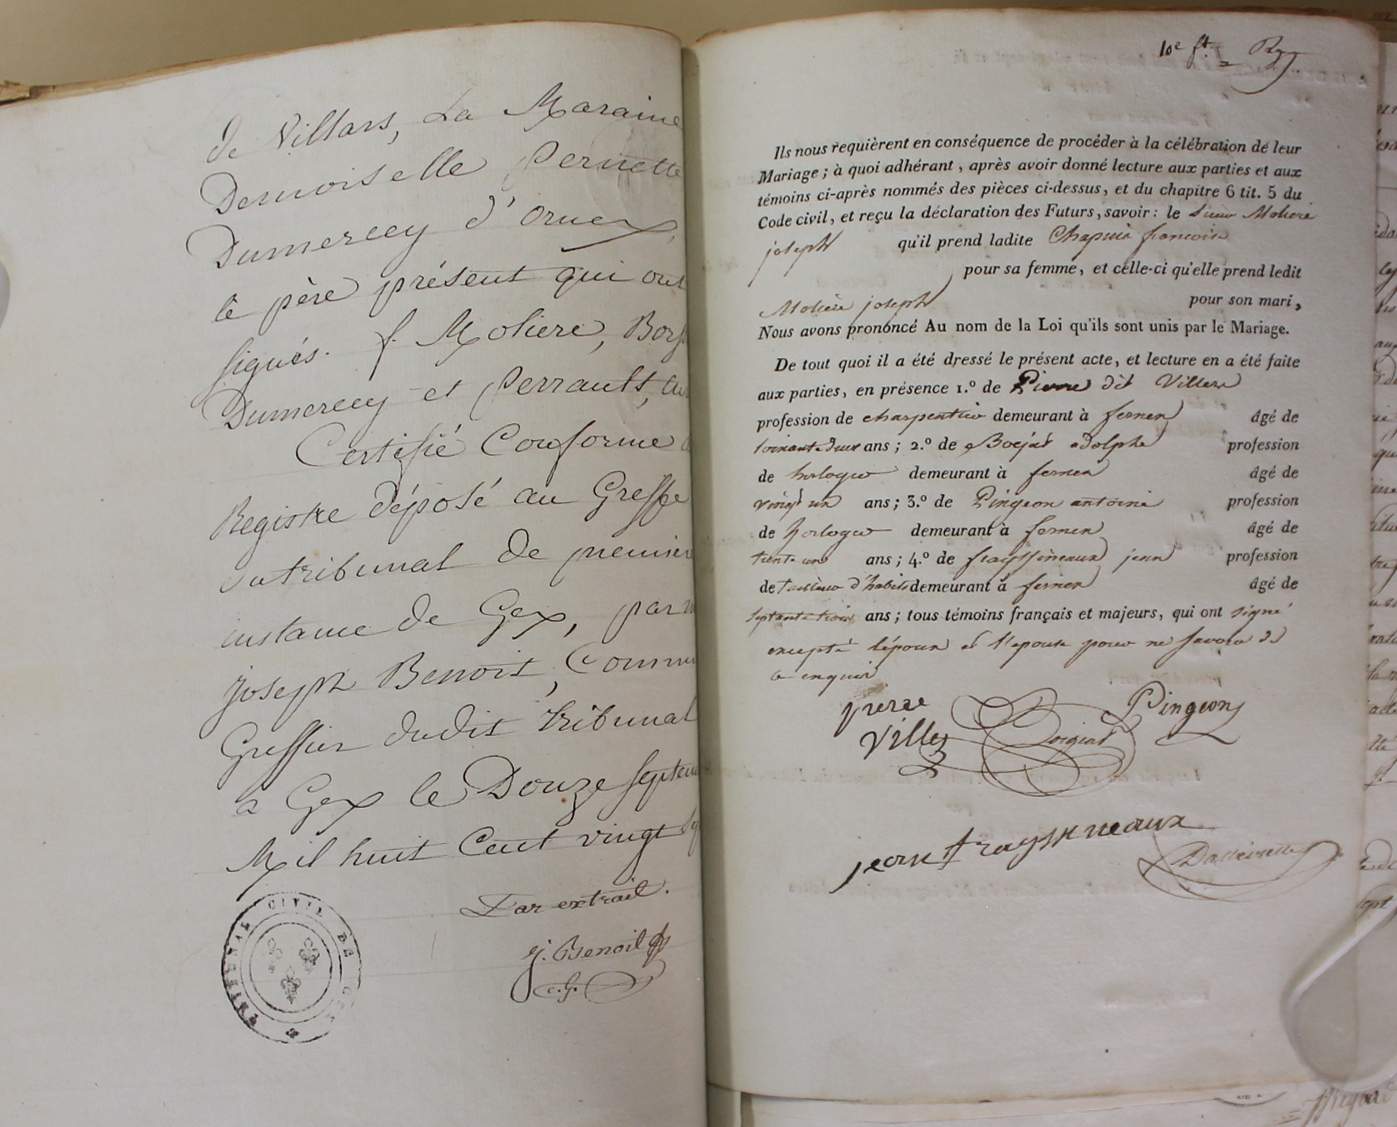 de Villars, La Maraine
Demoiselle Pernette
Dumerccy d'Ornex,
le père présent qui ont
signés. f. Moliere, Bors
Dumerccy et Perrault,
Certifié Conforme
Registre déposé au Greffe
du tribunal de premier
instance de Gex, par
joseph Benoit, Commi
Greffier dudit tribunal
a Gex le Douze septem
Mil huit Cent vingt
Par extrait.
j. Benoit
c. G.
TRIBUNAL CIVIL DE GEX
10e ft.
Ils nous requièrent en conséquence de procéder à la célébration de leur
Mariage ; à quoi adhérant, après avoir donné lecture aux parties et aux
témoins ci-après nommés des pièces ci-dessus, et du chapitre 6 tit. 5 du
Code civil, et reçu la déclaration des Futurs, savoir : le Sieur Moliere
joseph qu'il prend ladite Chapuis francoise
pour sa femme, et celle-ci qu'elle prend ledit
Moliere joseph pour son mari,
Nous avons prononcé Au nom de la Loi qu'ils sont unis par le Mariage.
De tout quoi il a été dressé le présent acte, et lecture en a été faite
aux parties, en présence 1.º de Pierre dit Villere
profession de charpentier demeurant à fernex âgé de
soixante deux ans ; 2.º de Borjat adolphe profession
de horloger demeurant à fernex âgé de
vingt un ans ; 3.º de Pingeon antoine profession
de horloger demeurant à fernex âgé de
trente une ans ; 4.º de frayssineaux jean profession
de tailleur d'habits demeurant à fernex âgé de
septante trois ans ; tous témoins français et majeurs, qui ont signé
excepté l'époux et l'epouse pour ne savoir de
ce enquis
pierre Pingeon
Viller Borgeat
jean frayssineaux